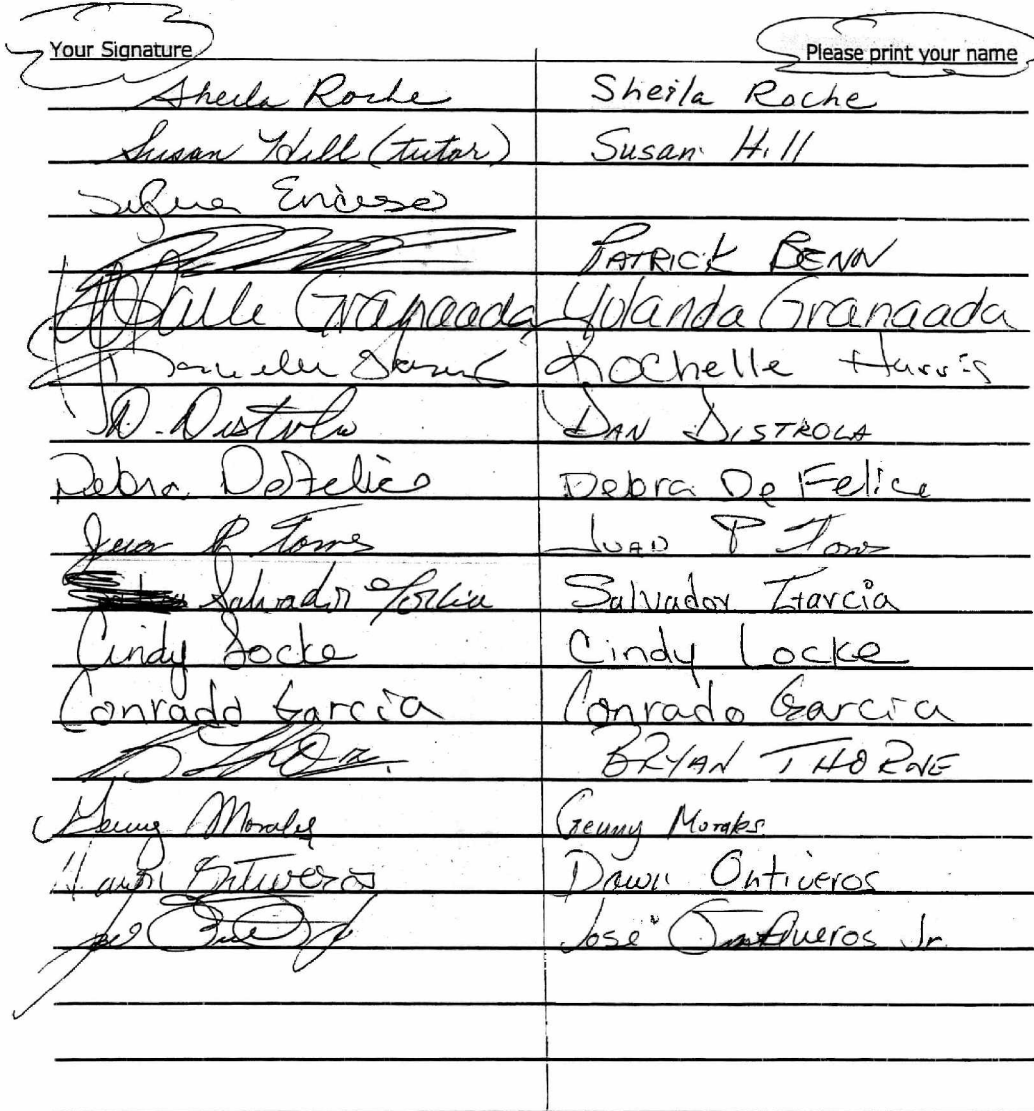 Your Signature Please print your name
Sheila Roche Sheila Roche
Susan Hill (tutor) Susan Hill
Enciso
PATRICK BENN
Valle Granaada Yolanda Granaada
Rochelle Harris
D. Distrola DAN DISTROLA
Debra DeFelice Debra De Felice
Juan P Torres JUAN P Torres
Salvador Garcia Salvador Garcia
Cindy Locke Cindy Locke
Conrado Garcia Conrado Garcia
BRYAN THORNE
Genny Morales Genny Morales
Dawn Ontiveros Dawn Ontiveros
José Ontiveros Jr.